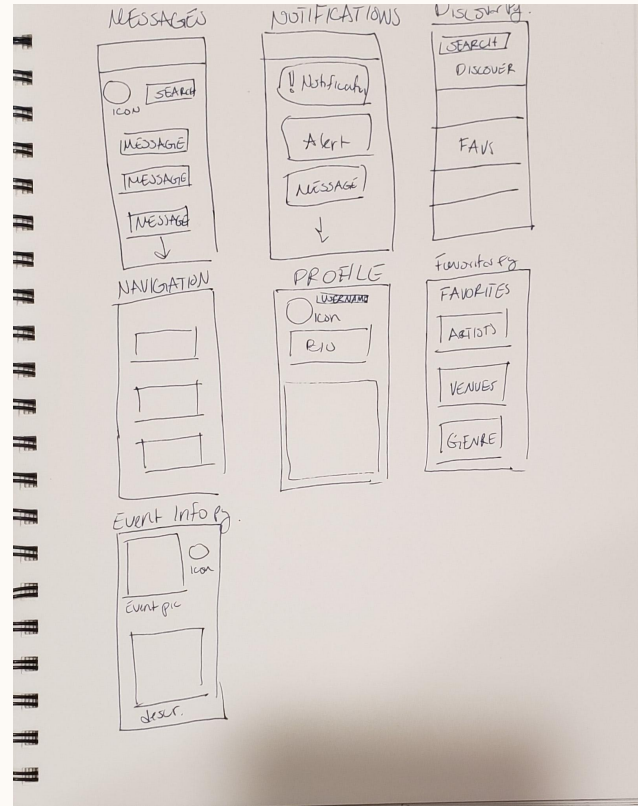 MESSAGES
ICON
SEARCH
MESSAGE
MESSAGE
MESSAGE
NOTIFICATIONS
! Notificatn
Alert
MESSAGE
Discovery Pg.
SEARCH
DISCOVER
FAVS
NAVIGATION
PROFILE
USERNAME
Icon
BIO
Favorites Pg
FAVORITES
ARTISTS
VENUES
GENRE
Event Info Pg.
Icon
Event pic
descr.